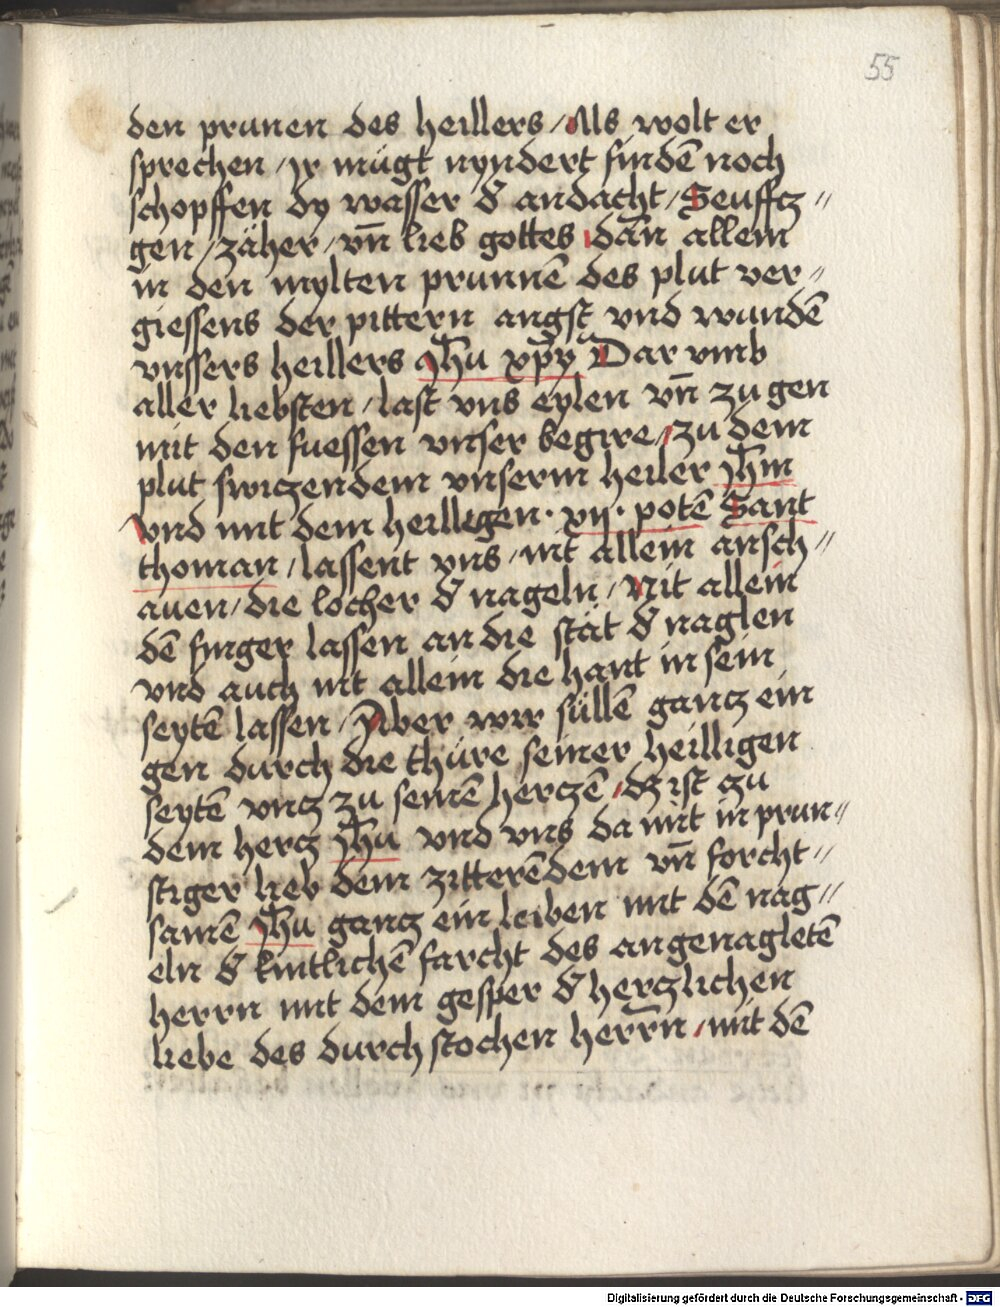 55
den prunen des heillers / Als wolt er
sprechen / ir mügt nyndert findē noch
schopffen dy wasser d̄ andacht / Seufftz //
gen / zäher / vn̄ lieb gottes dān allein
in den mylten prunnē des plut ver //
giessens der pittern angst vnd wundē
vnssers heillers Jh̄u xp̄ӯ Dar vmb
aller liebsten / last vns eylen vn̄ zu gen
mit den fuessen vnser begire / zu dem
plut switzendem vnserm heiler Jh̄m
vnd mit dem heilligen · xij · potē Sant
thoman / lassent vns / nit allein ansch //
auen / die locher d̄ nageln / Nit allein
dē finger lassen an die stät d̄ naglen
vnd auch nit allein die hant in sein
seytē lassen / Aber wir süllē gantz ein
gen durch die thüre seiner heilligen
seytē vntz zu seinē hertzē / dz ist zu
dem hertz Jh̄u vnd vns da mit in prun //
stiger lieb dem zitterēdem vn̄ forcht //
samē Jh̄u gantz ein leiben mit dē nag //
eln d̄ kintlichē farcht des angenagletē
herrn mit dem gesper d̄ hertzlichen
liebe des durch stochen herr̄n / mit dē
Digitalisierung gefördert durch die Deutsche Forschungsgemeinschaft - DFG